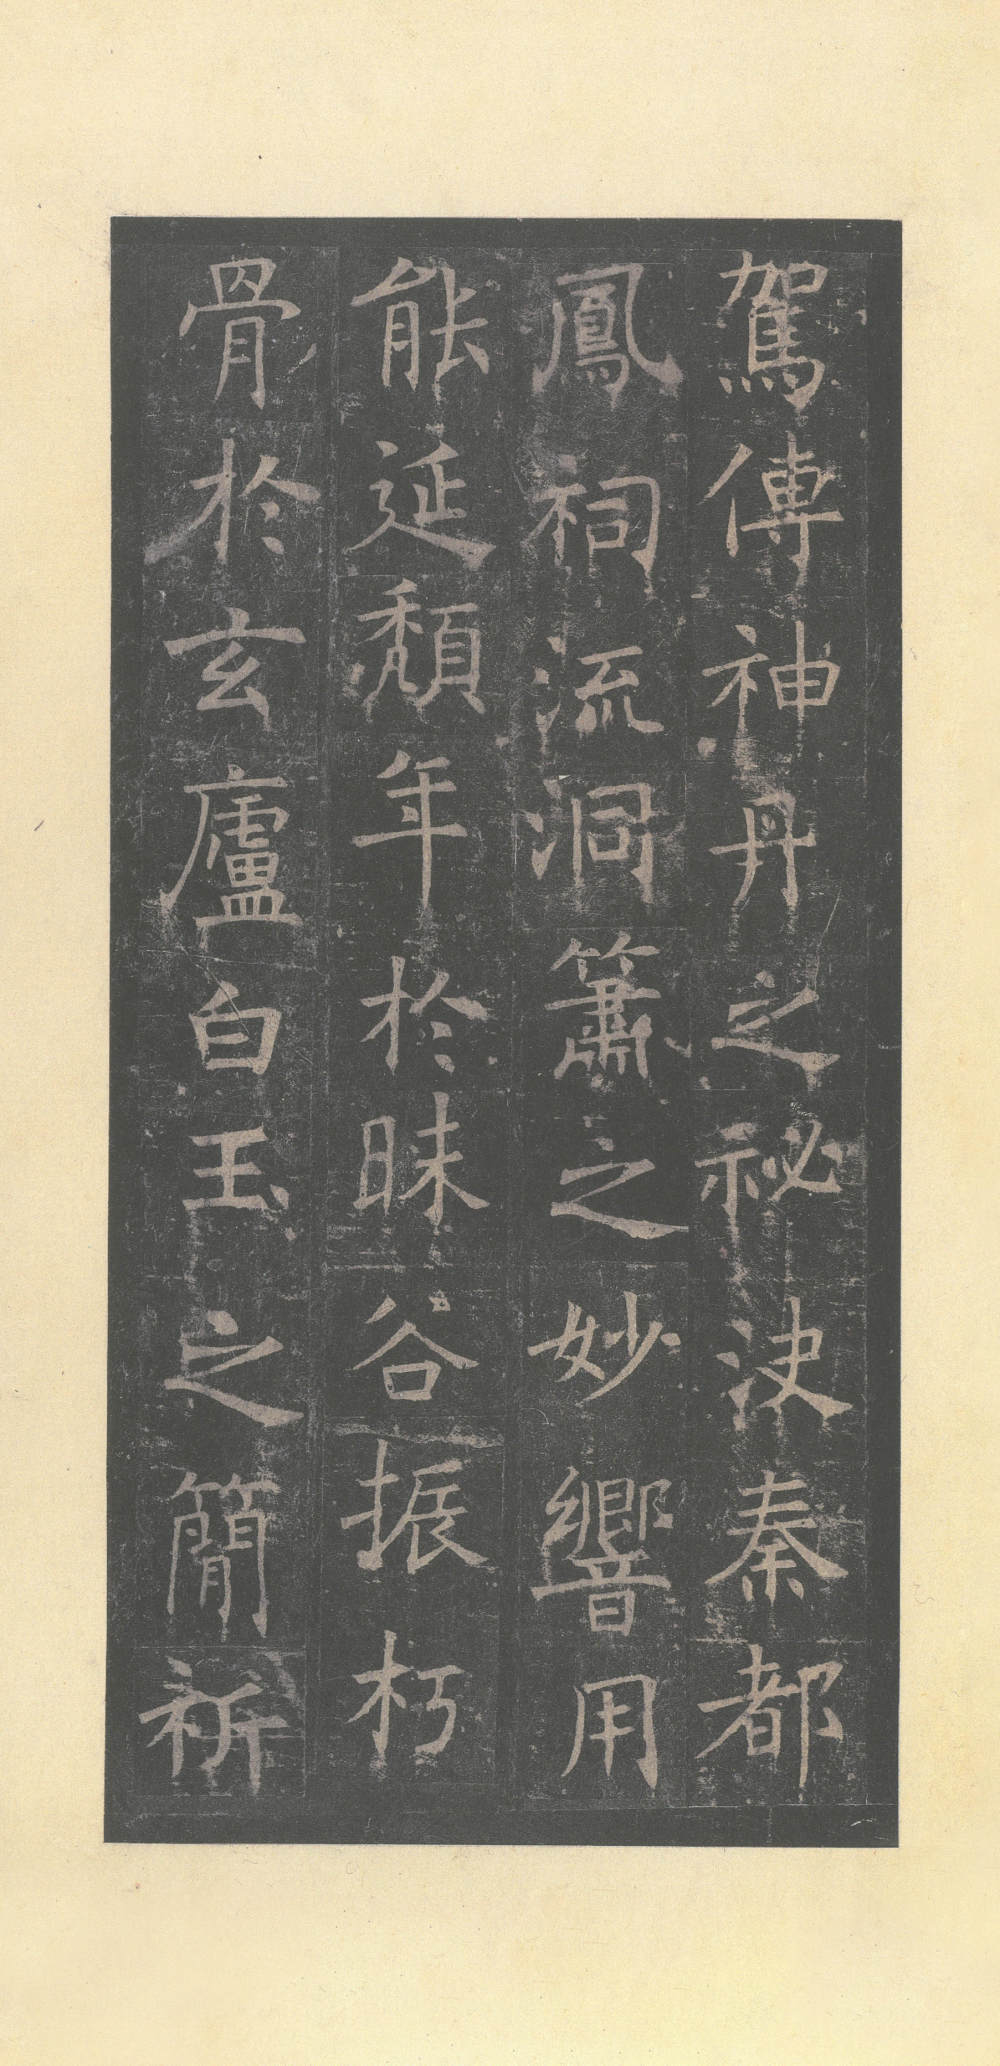 駕傳神丹之祕決秦都
鳳祠流洞簫之妙響用
能延頹年於昧谷振朽
骨於玄廬白玉之簡祈